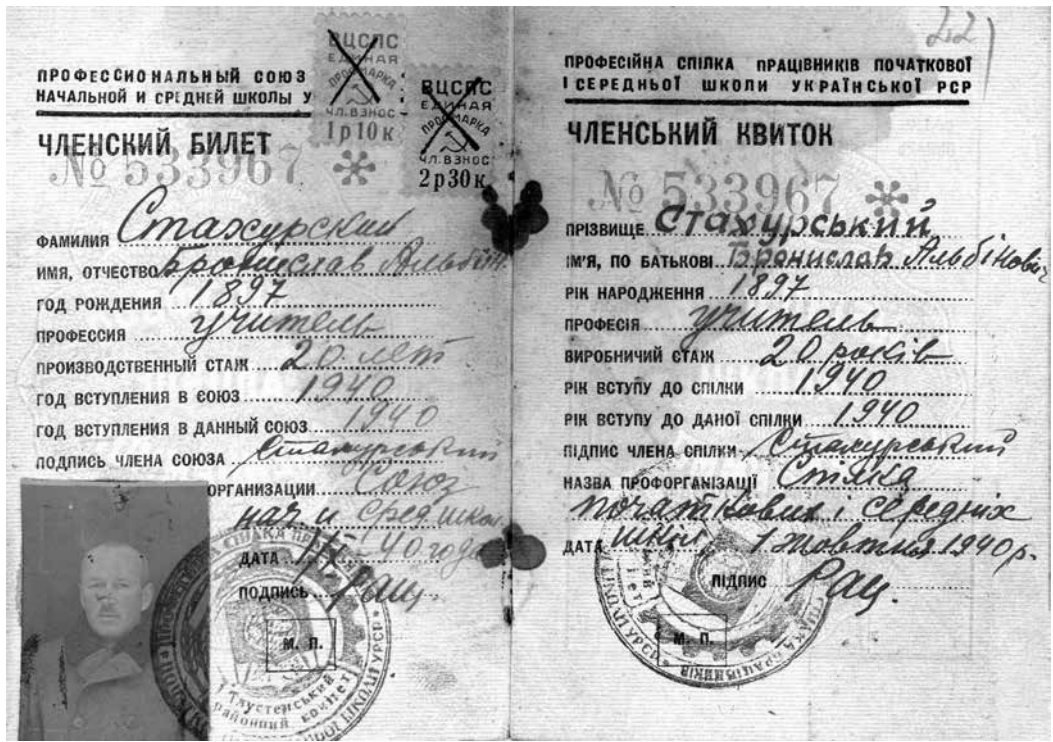 ПРОФЕССИОНАЛЬНЫЙ СОЮЗ
НАЧАЛЬНОЙ И СРЕДНЕЙ ШКОЛЫ У
ВЦСПС
ЕДИНАЯ
ПРОФМАРКА
ЧЛ. ВЗНОС
1 р 10 к
ВЦСПС
ЕДИНАЯ
ПРОФМАРКА
ЧЛ. ВЗНОС
2 р 30 к
ЧЛЕНСКИЙ БИЛЕТ
№ 533967 *
ФАМИЛИЯ Стахурский
ИМЯ, ОТЧЕСТВО Бронислав Альбин
ГОД РОЖДЕНИЯ 1897
ПРОФЕССИЯ учитель
ПРОИЗВОДСТВЕННЫЙ СТАЖ 20 лет
ГОД ВСТУПЛЕНИЯ В СОЮЗ 1940
ГОД ВСТУПЛЕНИЯ В ДАННЫЙ СОЮЗ 1940
ПОДПИСЬ ЧЛЕНА СОЮЗА Стахурский
ОРГАНИЗАЦИИ Союз
нач. и сред. школ
ДАТА 40 года
ПОДПИСЬ Рац.
М. П.
районний комітет
22
ПРОФЕСІЙНА СПІЛКА ПРАЦІВНИКІВ ПОЧАТКОВОЇ
І СЕРЕДНЬОЇ ШКОЛИ УКРАЇНСЬКОЇ РСР
ЧЛЕНСЬКИЙ КВИТОК
№ 533967 *
ПРІЗВИЩЕ Стахурський
ІМ'Я, ПО БАТЬКОВІ Броніслав Альбінович
РІК НАРОДЖЕННЯ 1897
ПРОФЕСІЯ учитель
ВИРОБНИЧИЙ СТАЖ 20 років
РІК ВСТУПУ ДО СПІЛКИ 1940
РІК ВСТУПУ ДО ДАНОЇ СПІЛКИ 1940
ПІДПИС ЧЛЕНА СПІЛКИ Стахурський
НАЗВА ПРОФОРГАНІЗАЦІЇ Спілка
початкових і середніх
ДАТА шкіл 1 жовтня 1940 р.
ПІДПИС Рац.
М. П.